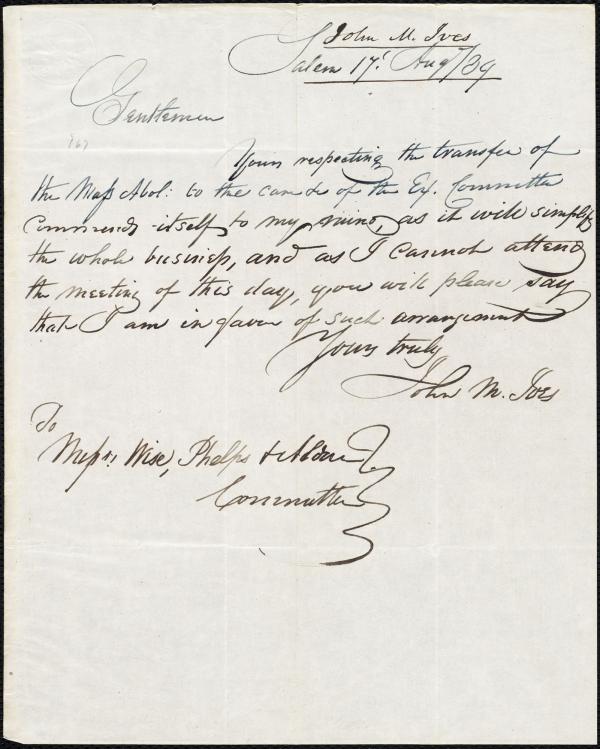 John M. Ives
Salem 17t Augt/39
Gentlemen
Yours respecting the transfer of
the Mass Abol: to the care &c of the Ex. Committee
commends itself to my mind, as it will simplify
the whole business, and as I cannot attend
the meeting of this day, you will please say
that I am in favor of such arrangement
Yours truly
John M. Ives
To
Messrs Wise, Phelps &
Committee